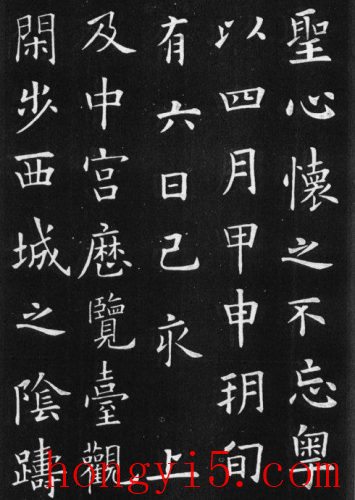 聖心懷之不忘粵
以四月甲申朔旬
有六日己亥 上
及中宮歷覽臺觀
閑步西城之陰躊
hongyi5.com